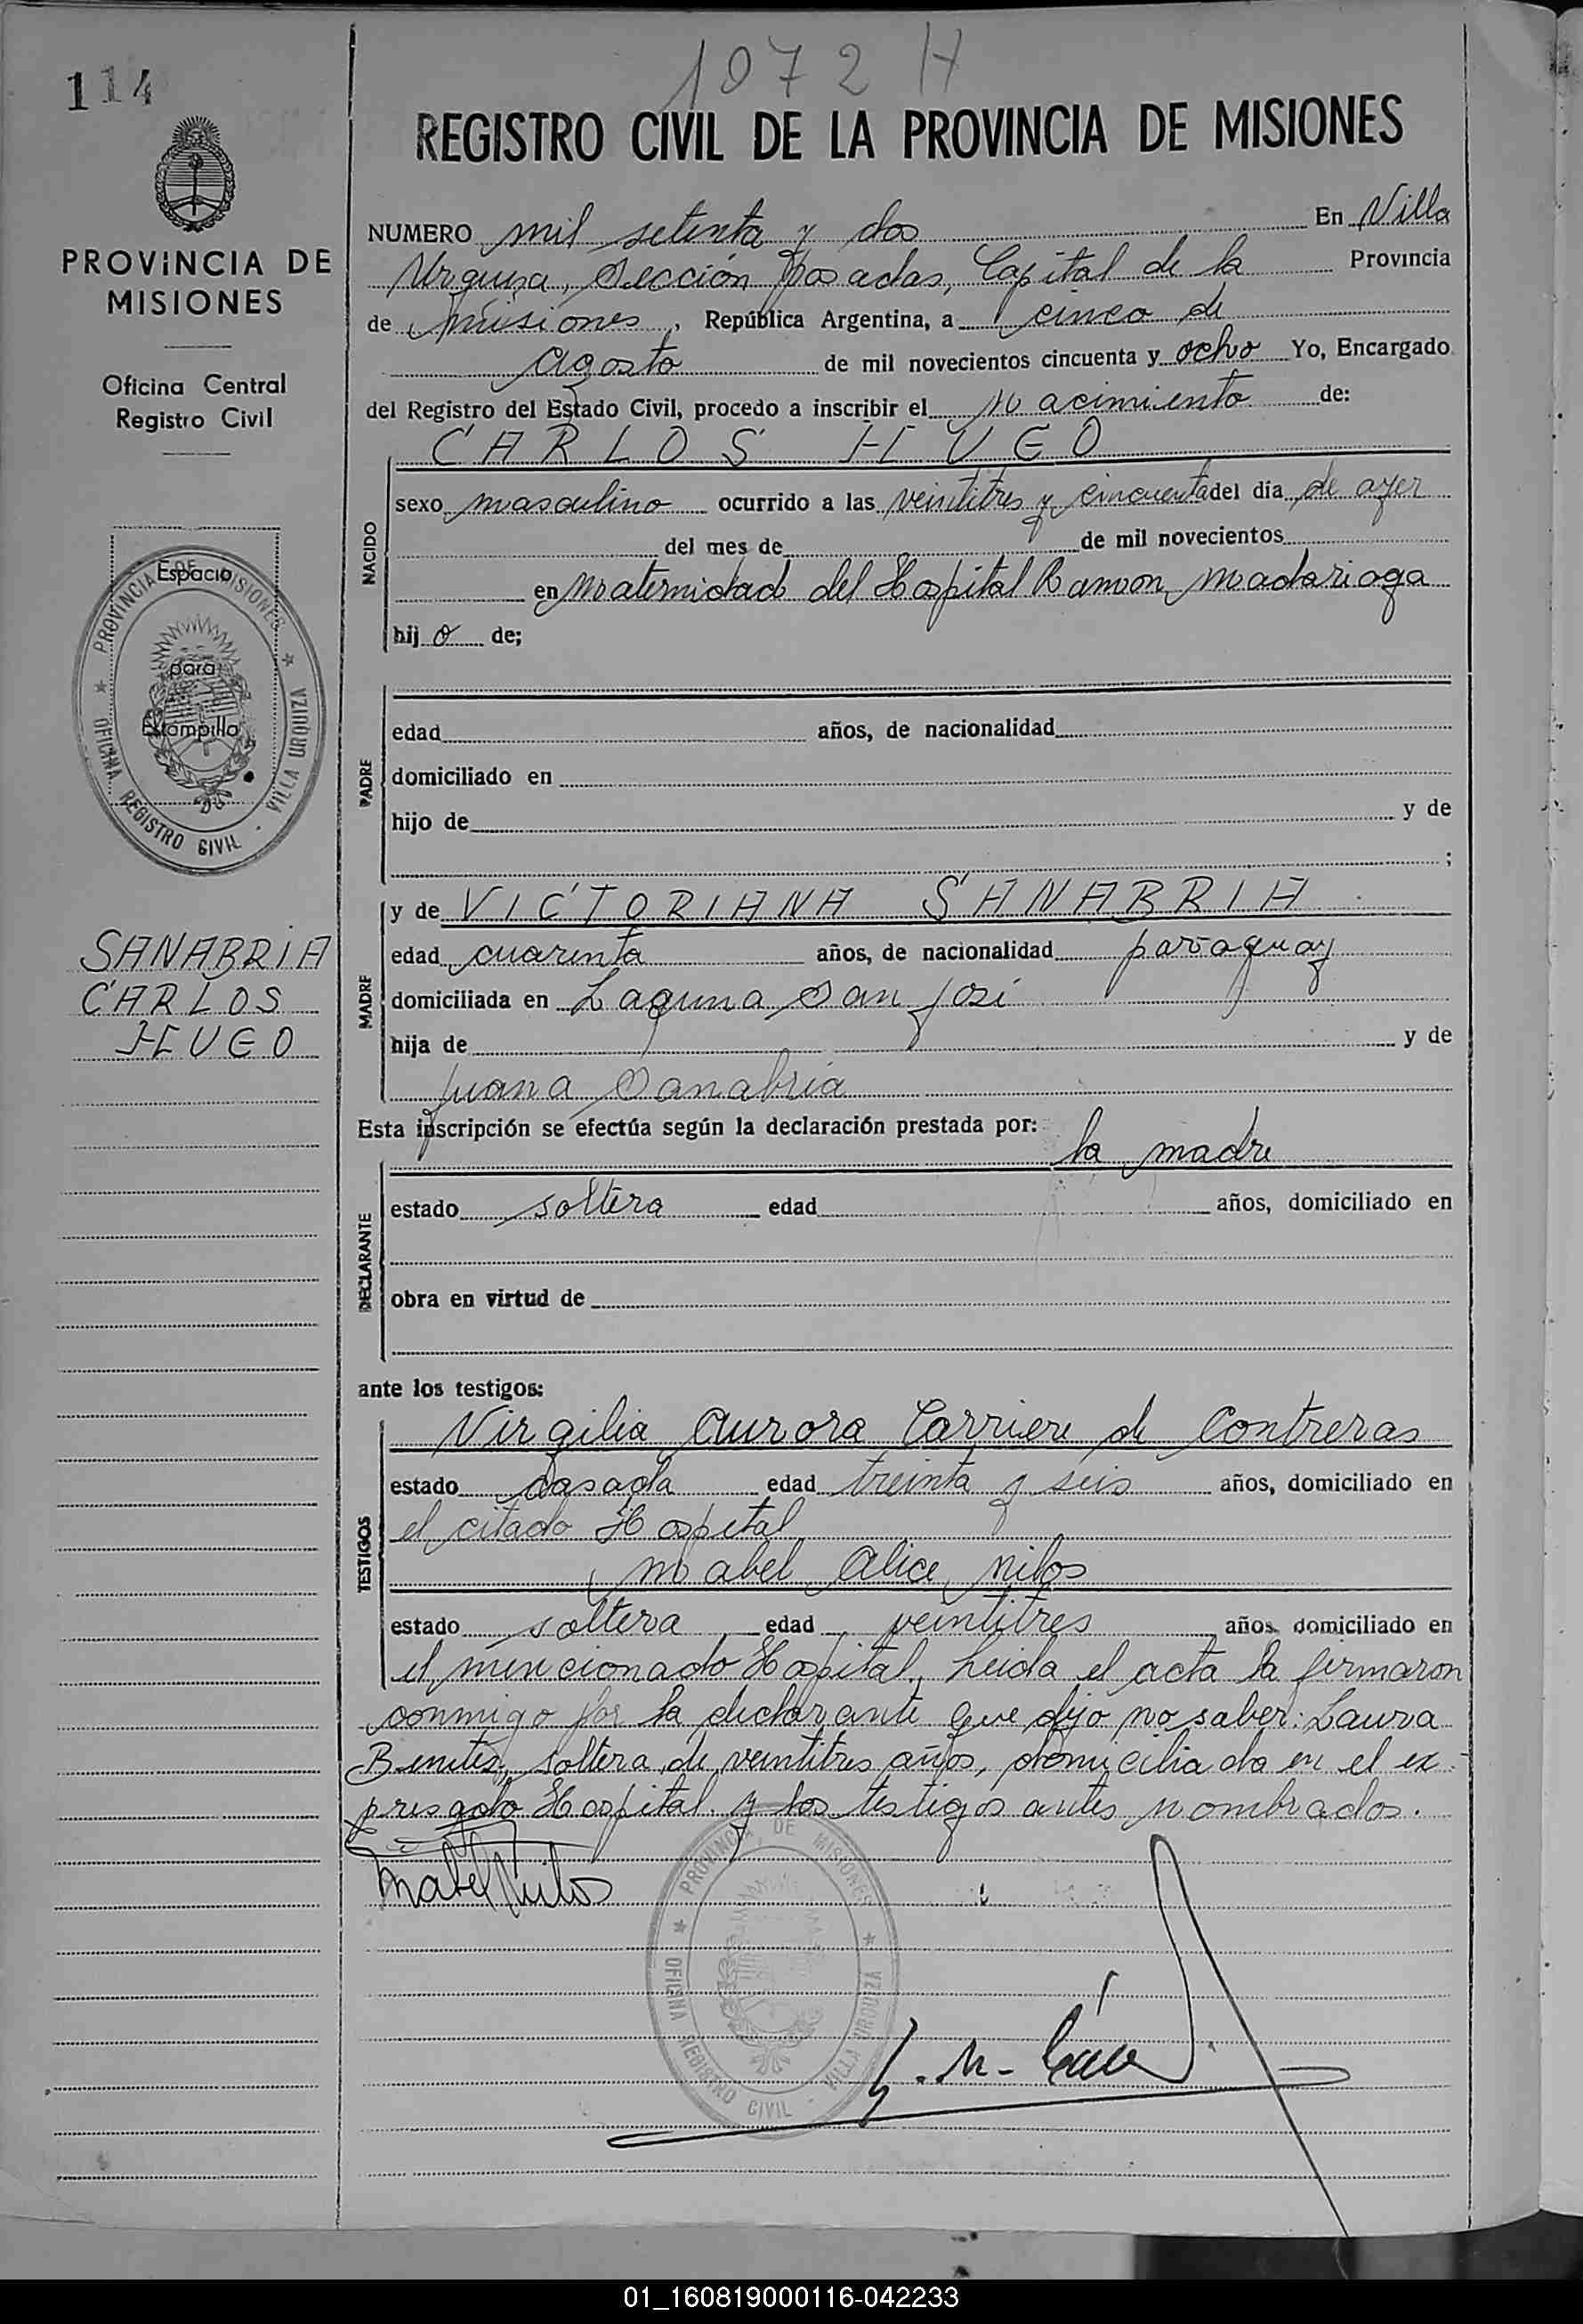 1072 H
114
REGISTRO CIVIL DE LA PROVINCIA DE MISIONES
PROVINCIA DE
MISIONES
Oficina Central
Registro Civil
NUMERO mil setenta y dos En Villa
Urquiza, Sección Posadas, Capital de la Provincia
de Misiones, República Argentina, a cinco de
Agosto de mil novecientos cincuenta y ocho Yo, Encargado
del Registro del Estado Civil, procedo a inscribir el Nacimiento de:
CARLOS HUGO
NACIDO
sexo masculino ocurrido a las veintitres y cincuenta del día de ayer
del mes de de mil novecientos
en Maternidad del Hospital Ramon Madariaga
hij o de;
Espacio
para
Estampilla
PROVINCIA DE MISIONES
OFICINA REGISTRO CIVIL - VILLA URQUIZA
PADRE
edad años, de nacionalidad
domiciliado en
hijo de y de
;
SANABRIA
CARLOS
HUGO
MADRE
y de VICTORIANA SANABRIA
edad cuarenta años, de nacionalidad paraguay
domiciliada en Laguna San José
hija de y de
Juana Sanabria
Esta inscripción se efectúa según la declaración prestada por:
la madre
DECLARANTE
estado soltera edad años, domiciliado en
obra en virtud de
ante los testigos:
TESTIGOS
Virgilia Aurora Carriere de Contreras
estado casada edad treinta y seis años, domiciliado en
el citado Hospital
Mabel Alice Nilos
estado soltera edad veintitres años domiciliado en
el mencionado Hospital. Leida el acta la firmaron
conmigo por la declarante que dijo no saber: Laura
Benites, soltera de veintitres años, domiciliada en el ex-
presado Hospital y los testigos antes nombrados.
Mabel Nilos
PROVINCIA DE MISIONES
OFICINA REGISTRO CIVIL - VILLA URQUIZA
01_160819000116-042233